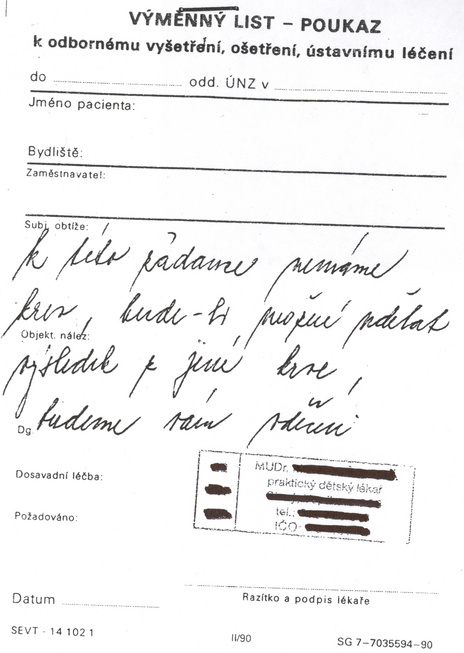 VÝMĚNNÝ LIST – POUKAZ
k odbornému vyšetření, ošetření, ústavnímu léčení
do odd. ÚNZ v
Jméno pacienta:
Bydliště:
Zaměstnavatel:
Subj. obtíže:
K této žádance nemáme
krev, bude-li možné udělat
Objekt. nález:
výsledek z jiné krve,
Dg budeme vám vděčni
Dosavadní léčba:
Požadováno:
MUDr.
praktický dětský lékař
tel.:
IČO:
Datum
Razítko a podpis lékaře
SEVT - 14 102 1
II/90
SG 7-7035594-90